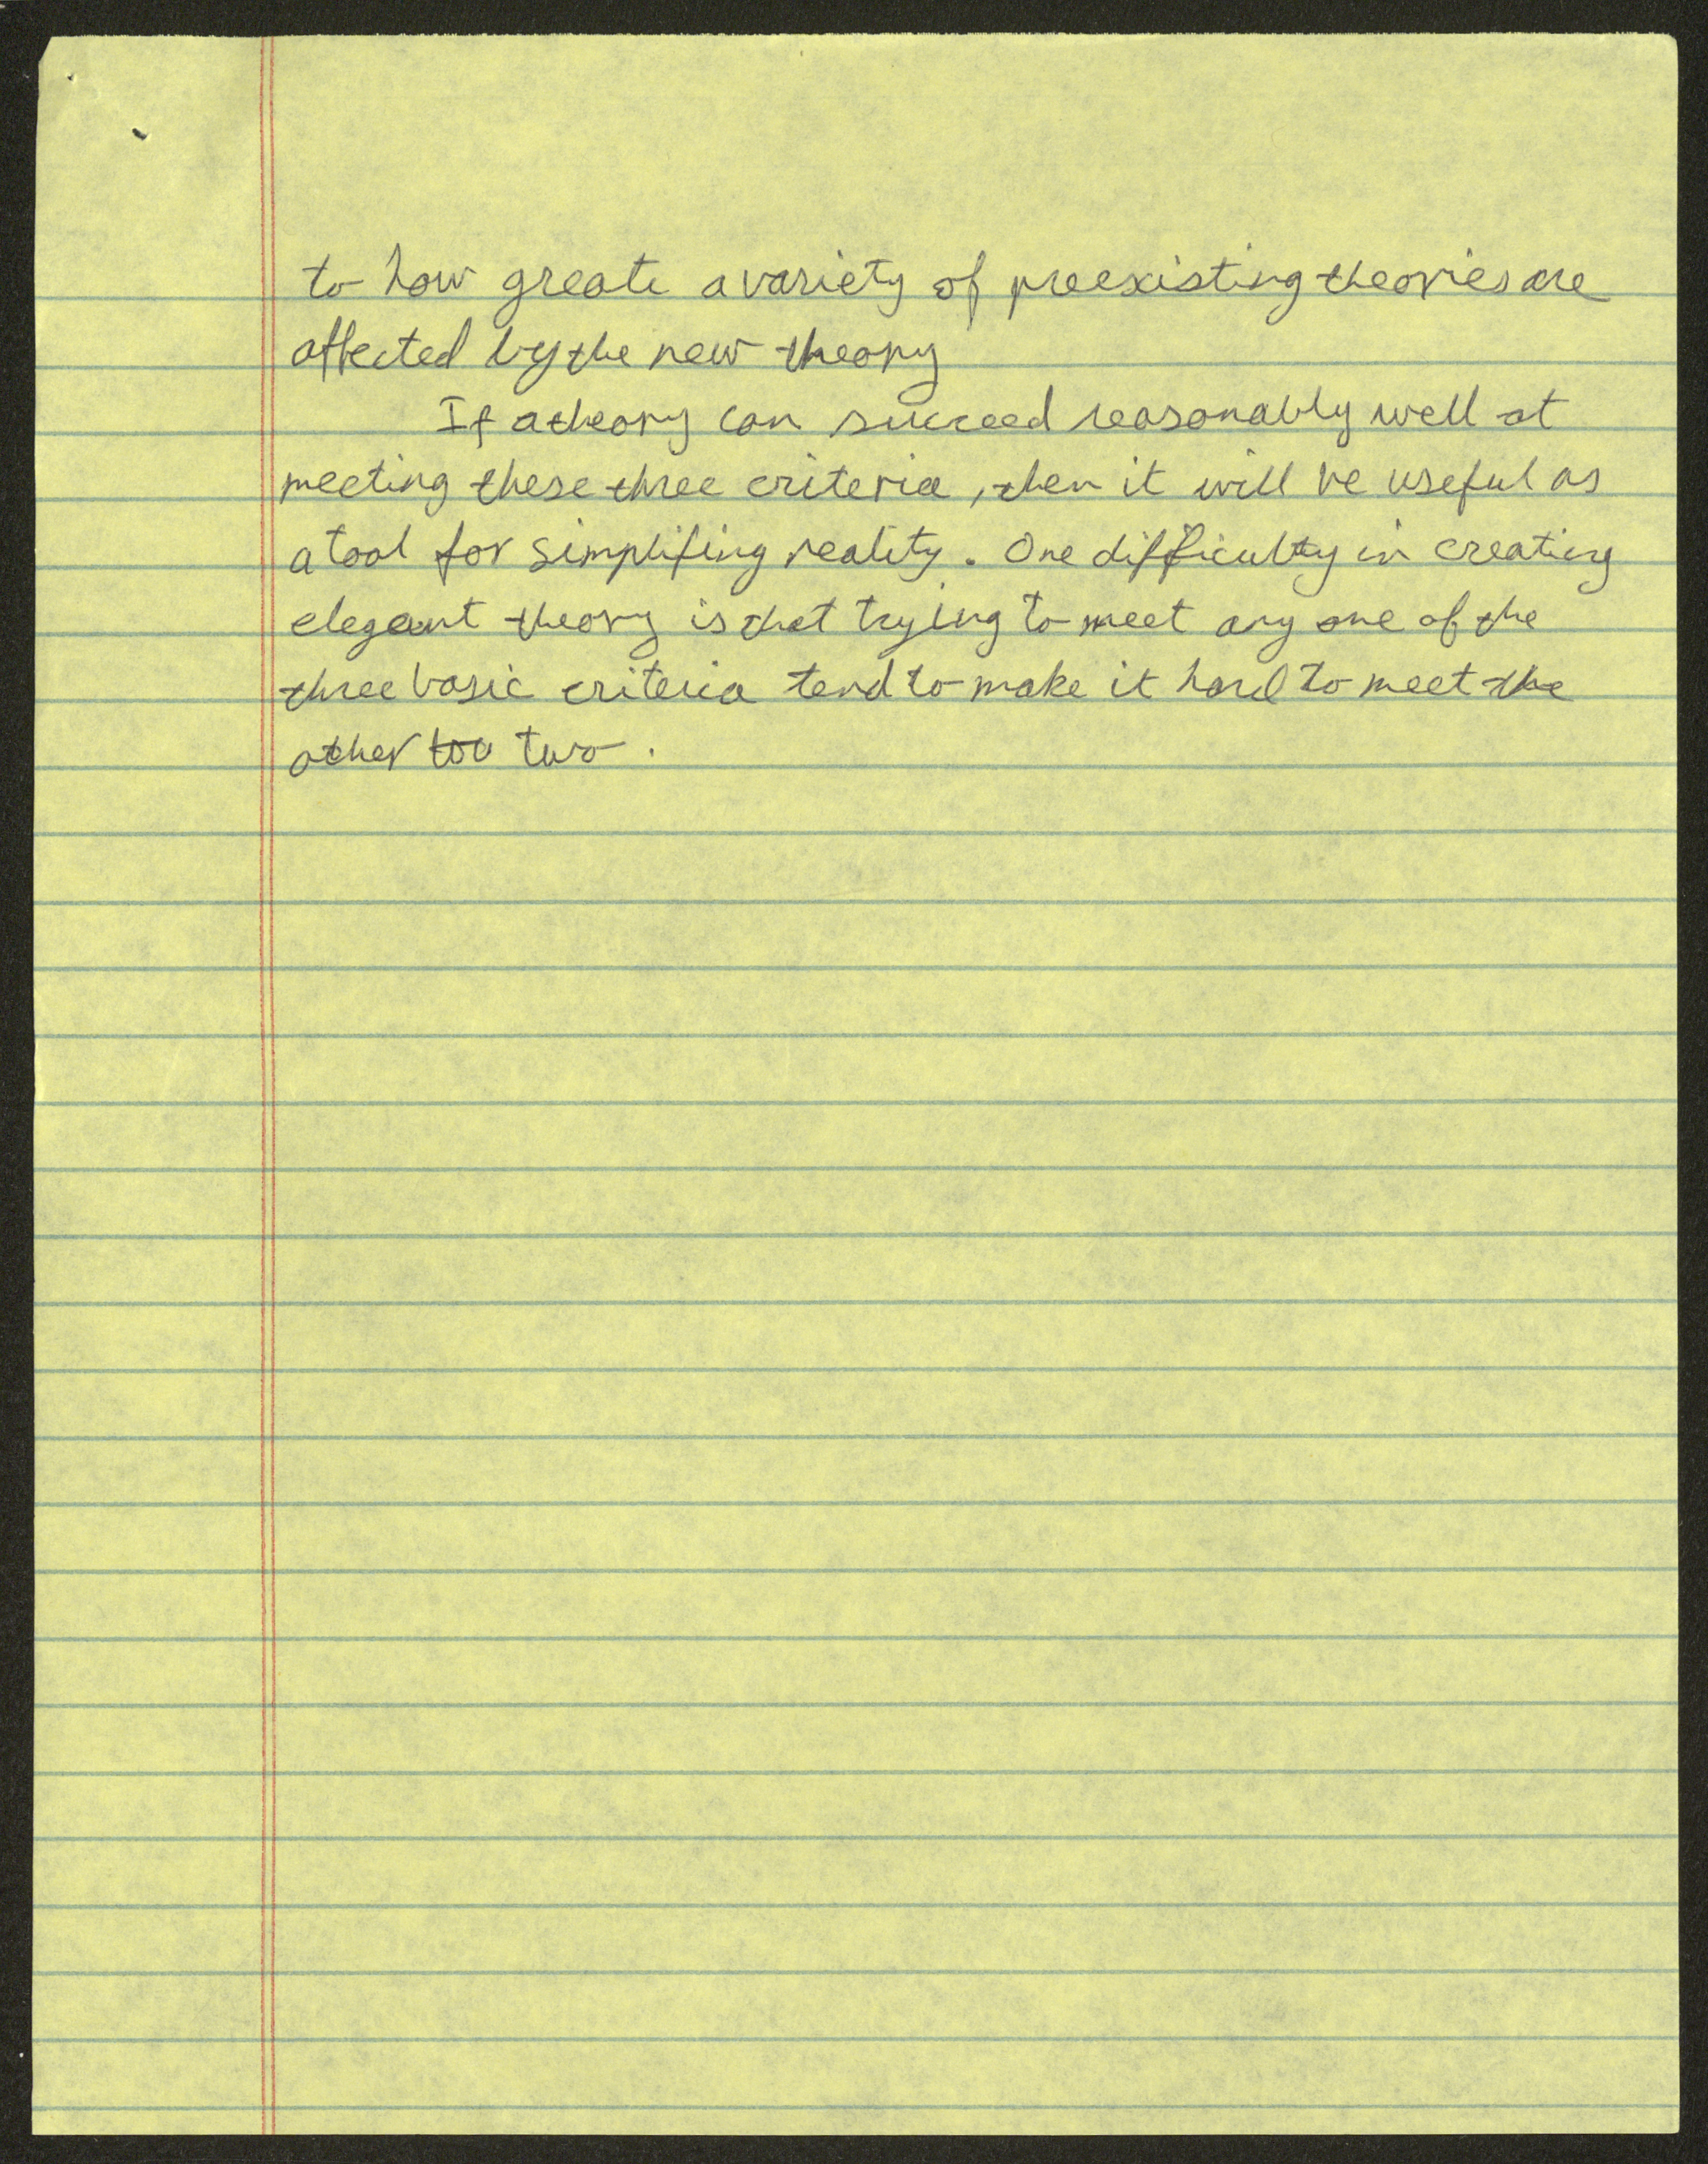 to how greate a variety of preexisting theories are
affected by the new theory
If a theory can succeed reasonably well at
meeting these three criteria, then it will be useful as
a tool for simplifing reality. One difficulty in creating
elegant theory is that trying to meet any one of the
three basic criteria tend to make it hard to meet the
other too two.